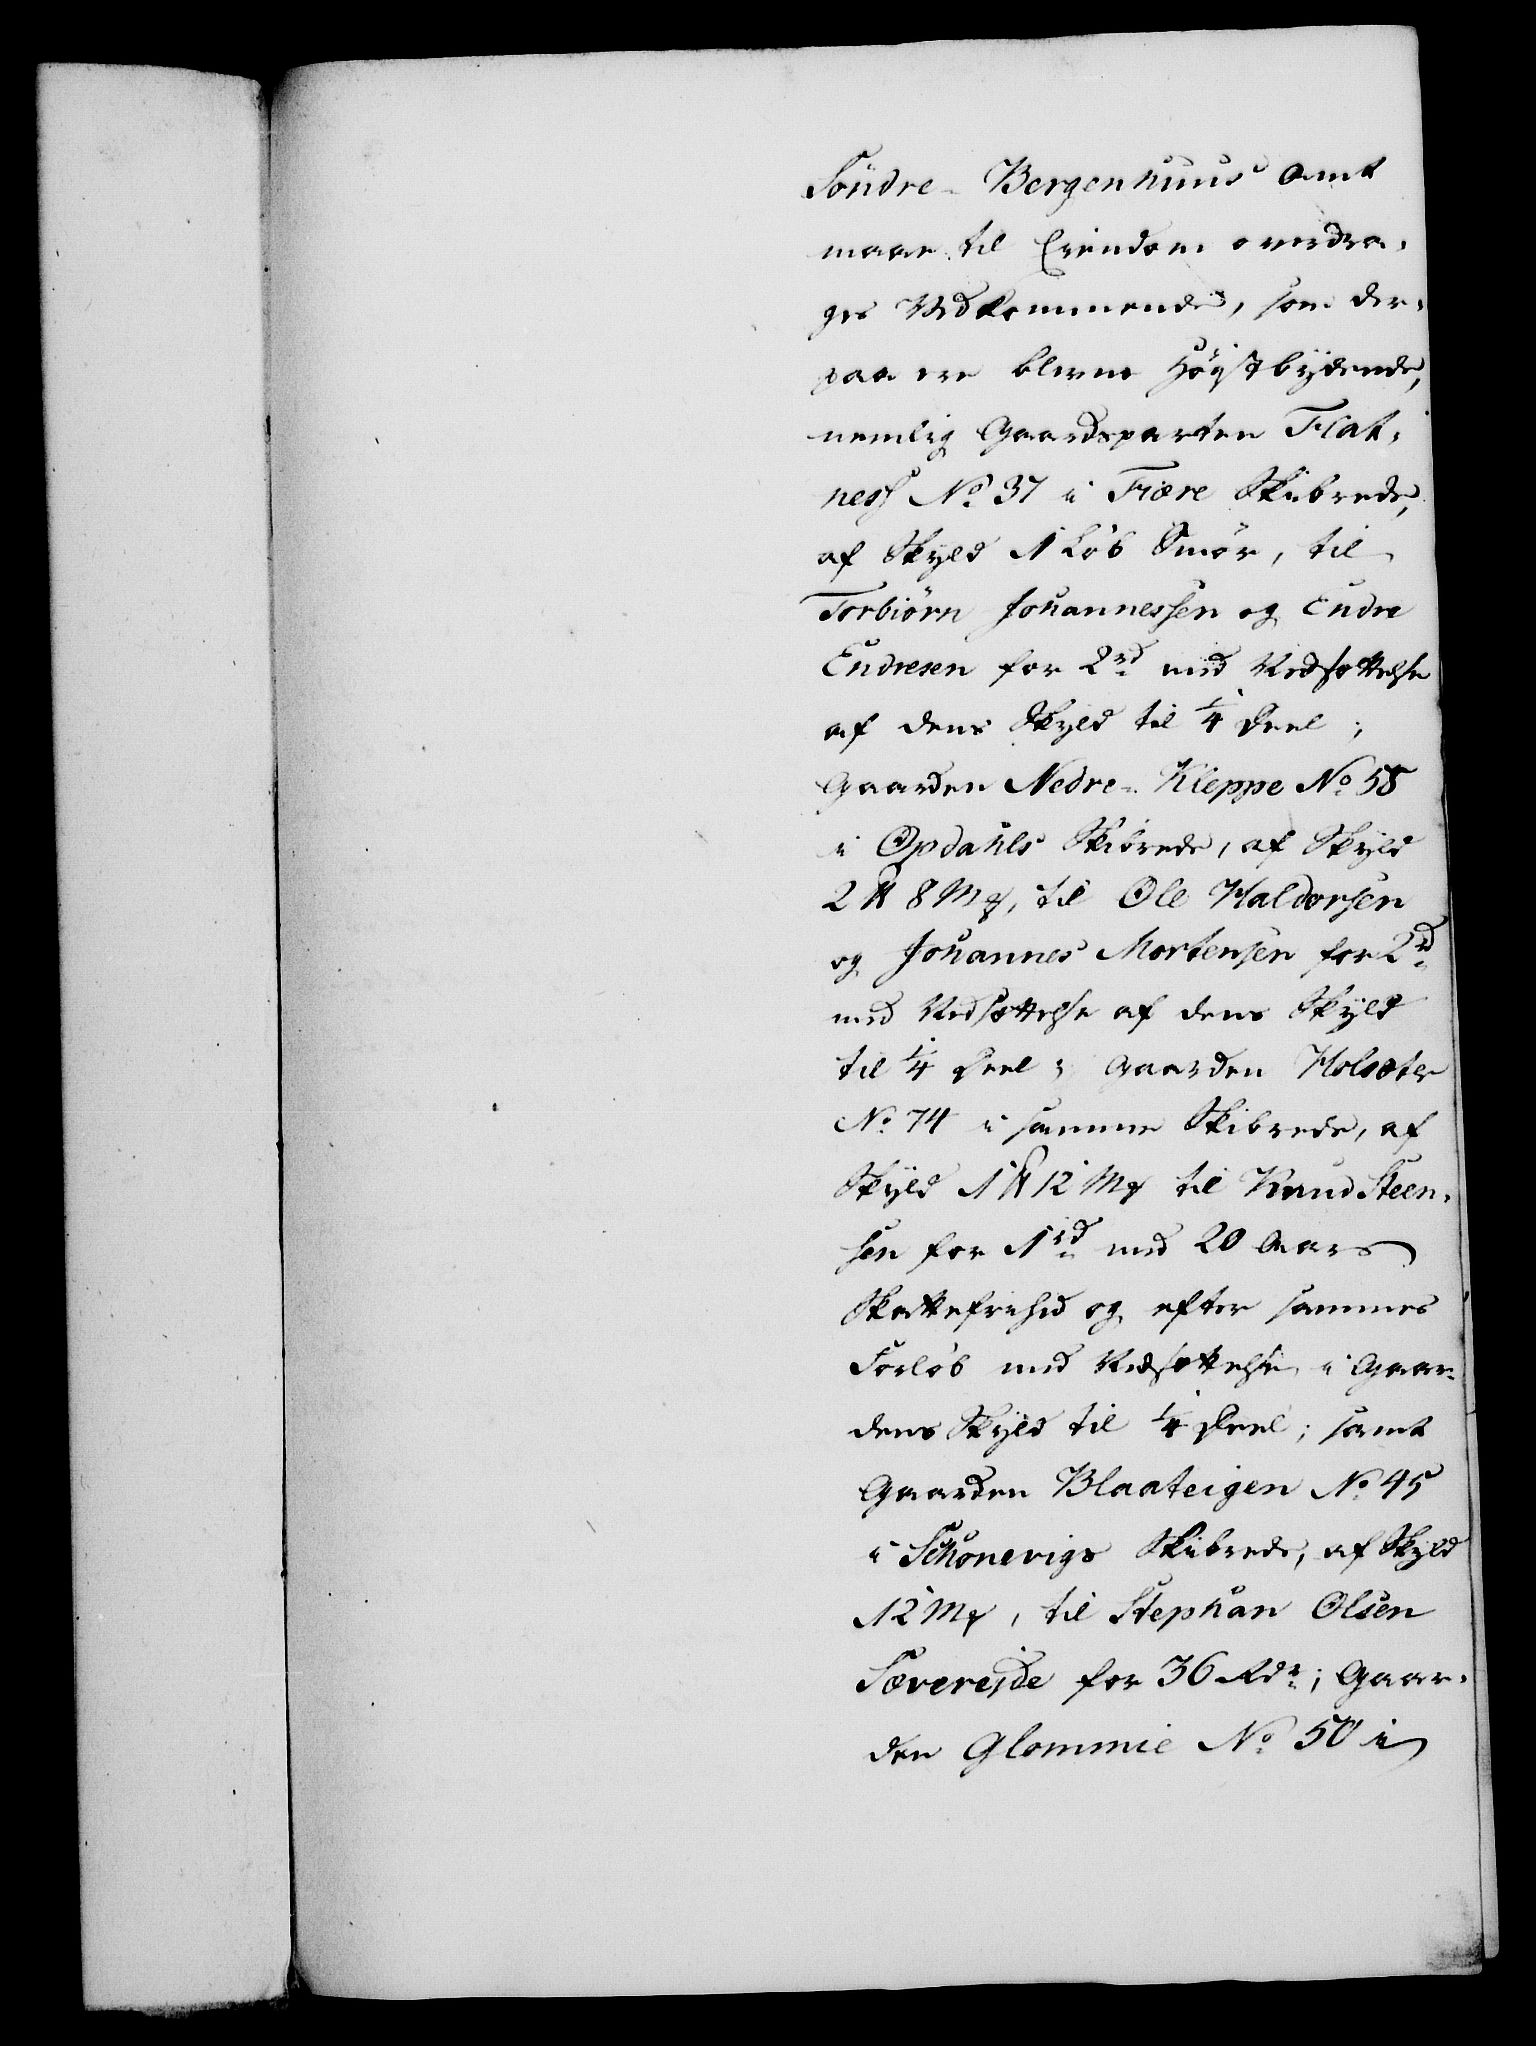 Söndre-Bergenhuus Amt
maae til Eiendom overdra-
ges Vedkommende, som der-
paa ere blevne Höystbydende,
nemlig Gaardsparten Flat-
ness No 37 i Fiære Skibrede,
af Skyld 1 Löb Smör, til
Torbiörn Johannessen og Endre
Endresen for 2rd med Nedsættelse
af dens Skyld til 1/4 Deel;
Gaarden Nedre-Kleppe No 58
i Opdahls Skibrede, af Skyld
2 ℔ 8 Mk, til Ole Haldorsen
og Johannes Mortensen for 2rd
med Nedsættelse af dens Skyld
til 1/4 Deel; Gaarden Holsæter
No 74 i samme Skibrede, af
Skyld 1 ℔ 12 Mk til Knud Steen-
sen for 1rd med 20 Aars
Skattefrihed og efter sammes
Forlöb med Nedsættelse i Gaar-
dens Skyld til 1/4 Deel; samt
Gaarden Blaateigen No 45
i Schonevigs Skibrede, af Skyld
12 Mk, til Stephan Olsen
Sævereide for 36 Rdr; Gaar-
den Glommie No 50 i